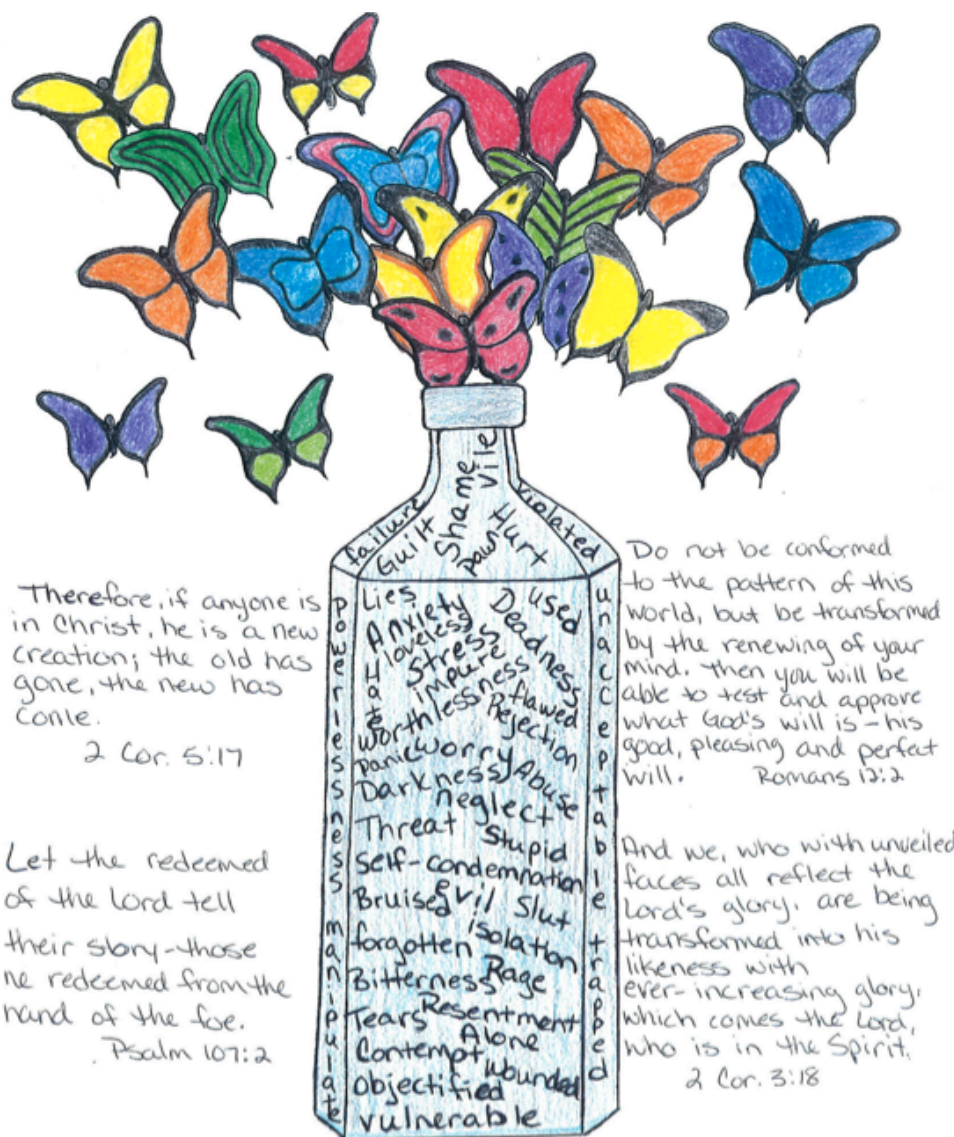 Therefore, if anyone is
in Christ, he is a new
creation; the old has
gone, the new has
Conle.
2 Cor. 5:17
Let the redeemed
of the Lord tell
their story-those
he redeemed from the
hand of the foe.
Psalm 107:2
vile
Shame
failure
Guilt
pawn
Hurt
violated
Powerlessness manipulate
Lies
used
Anxiety
Deadness
loveless
Hate
Stress
impure
worthlessness
flawed
Rejection
Panic
worry
Abuse
Darkness
neglect
Threat
Stupid
self-condemnation
Bruised
evil
Slut
forgotten
isolation
Bitterness
Rage
Tears
Resentment
Alone
Contempt
wounded
objectified
vulnerable
unacceptable trapped
Do not be conformed
to the pattern of this
world, but be transformed
by the renewing of your
mind. Then you will be
able to test and approve
what God's will is - his
good, pleasing and perfect
will. Romans 12:2
And we, who with unveiled
faces all reflect the
Lord's glory, are being
transformed into his
likeness with
ever-increasing glory,
which comes the Lord,
who is in the Spirit.
2 Cor. 3:18